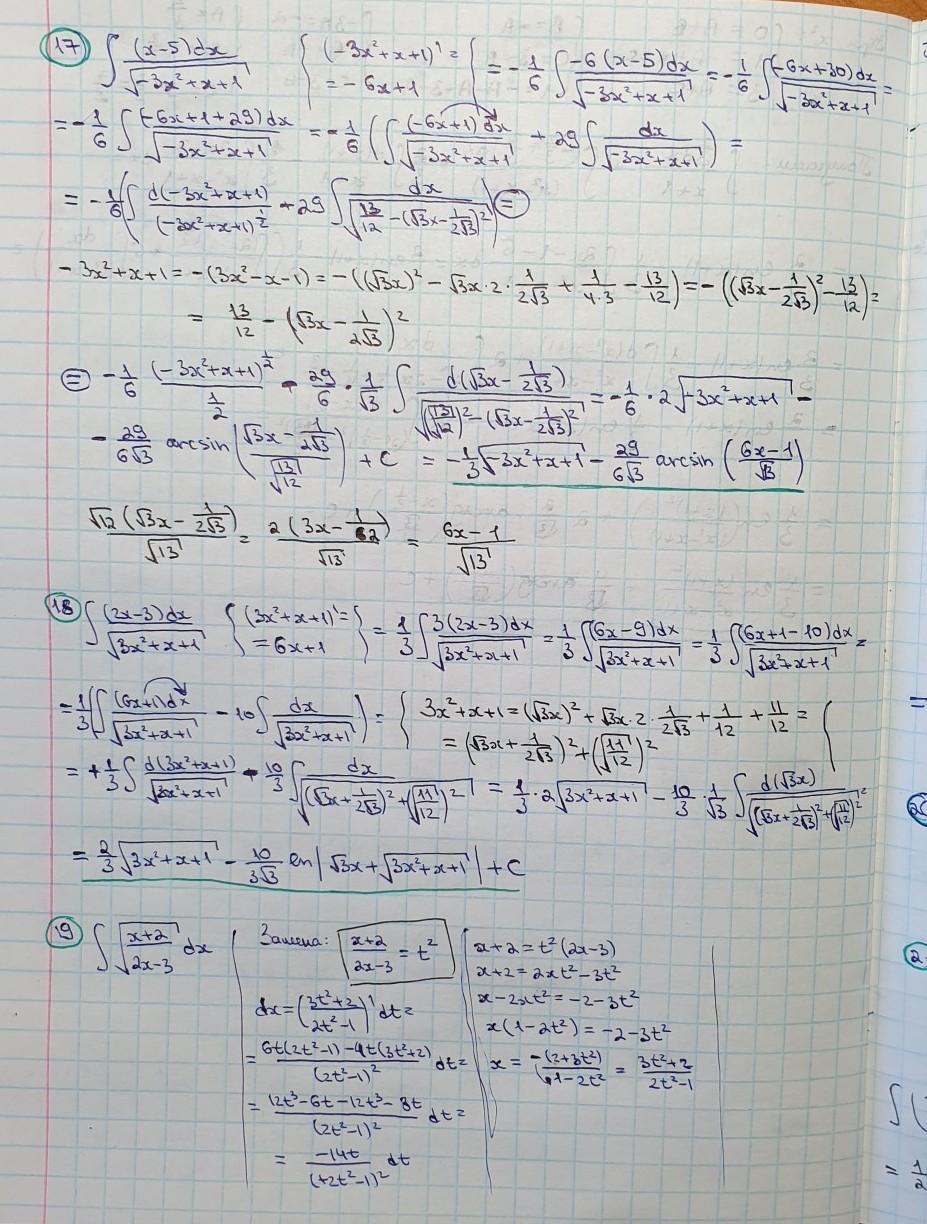 17) ∫ (x-5)dx / √(-3x²+x+1) { (-3x²+x+1)' = = -6x+1 { = -1/6 ∫ -6(x-5)dx / √(-3x²+x+1) = -1/6 ∫ (-6x+30)dx / √(-3x²+x+1) =
= -1/6 ∫ (-6x+1+29)dx / √(-3x²+x+1) = -1/6 (∫ (-6x+1)dx / √(-3x²+x+1) + 29 ∫ dx / √(-3x²+x+1)) =
= -1/6 (∫ d(-3x²+x+1) / (-3x²+x+1)^(1/2) + 29 ∫ dx / √(13/12 - (√3x - 1/(2√3))²)) =
-3x²+x+1 = -(3x²-x-1) = -((√3x)² - √3x·2·1/(2√3) + 1/(4·3) - 13/12) = -((√3x - 1/(2√3))² - 13/12) =
= 13/12 - (√3x - 1/(2√3))²
= -1/6 (-3x²+x+1)^(1/2) / (1/2) - 29/6 · 1/√3 ∫ d(√3x - 1/(2√3)) / √((√(13/12))² - (√3x - 1/(2√3))²) = -1/6 · 2√(-3x²+x+1) -
- 29/(6√3) arcsin((√3x - 1/(2√3)) / √(13/12)) + C = -1/3 √(-3x²+x+1) - 29/(6√3) arcsin((6x-1)/√13)
√12(√3x - 1/(2√3)) / √13 = 2(3x - 1/2) / √13 = (6x-1)/√13
18) ∫ (2x-3)dx / √(3x²+x+1) { (3x²+x+1)' = = 6x+1 } = 1/3 ∫ 3(2x-3)dx / √(3x²+x+1) = 1/3 ∫ (6x-9)dx / √(3x²+x+1) = 1/3 ∫ (6x+1-10)dx / √(3x²+x+1) =
= 1/3 (∫ (6x+1)dx / √(3x²+x+1) - 10 ∫ dx / √(3x²+x+1)) = { 3x²+x+1 = (√3x)² + √3x·2·1/(2√3) + 1/12 + 11/12 = = (√3x + 1/(2√3))² + (√(11/12))² {
= +1/3 ∫ d(3x²+x+1) / √(3x²+x+1) - 10/3 ∫ dx / √((√3x + 1/(2√3))² + (√(11/12))²) = 1/3 · 2√(3x²+x+1) - 10/3 · 1/√3 ∫ d(√3x) / √((√3x + 1/(2√3))² + (√(11/12))²)
= 2/3 √(3x²+x+1) - 10/(3√3) ln|√3x + √(3x²+x+1)| + C
19) ∫ √((x+2)/(2x-3)) dx
Замена: (x+2)/(2x-3) = t²
dx = ((3t²+2)/(2t²-1))' dt =
= (6t(2t²-1) - 4t(3t²+2)) / (2t²-1)² dt =
= (12t³-6t-12t³-8t) / (2t²-1)² dt =
= -14t / (+2t²-1)² dt
x+2 = t²(2x-3)
x+2 = 2xt²-3t²
x-2xt² = -2-3t²
x(1-2t²) = -2-3t²
x = -(2+3t²) / (1-2t²) = (3t²+2)/(2t²-1)
= 1/2